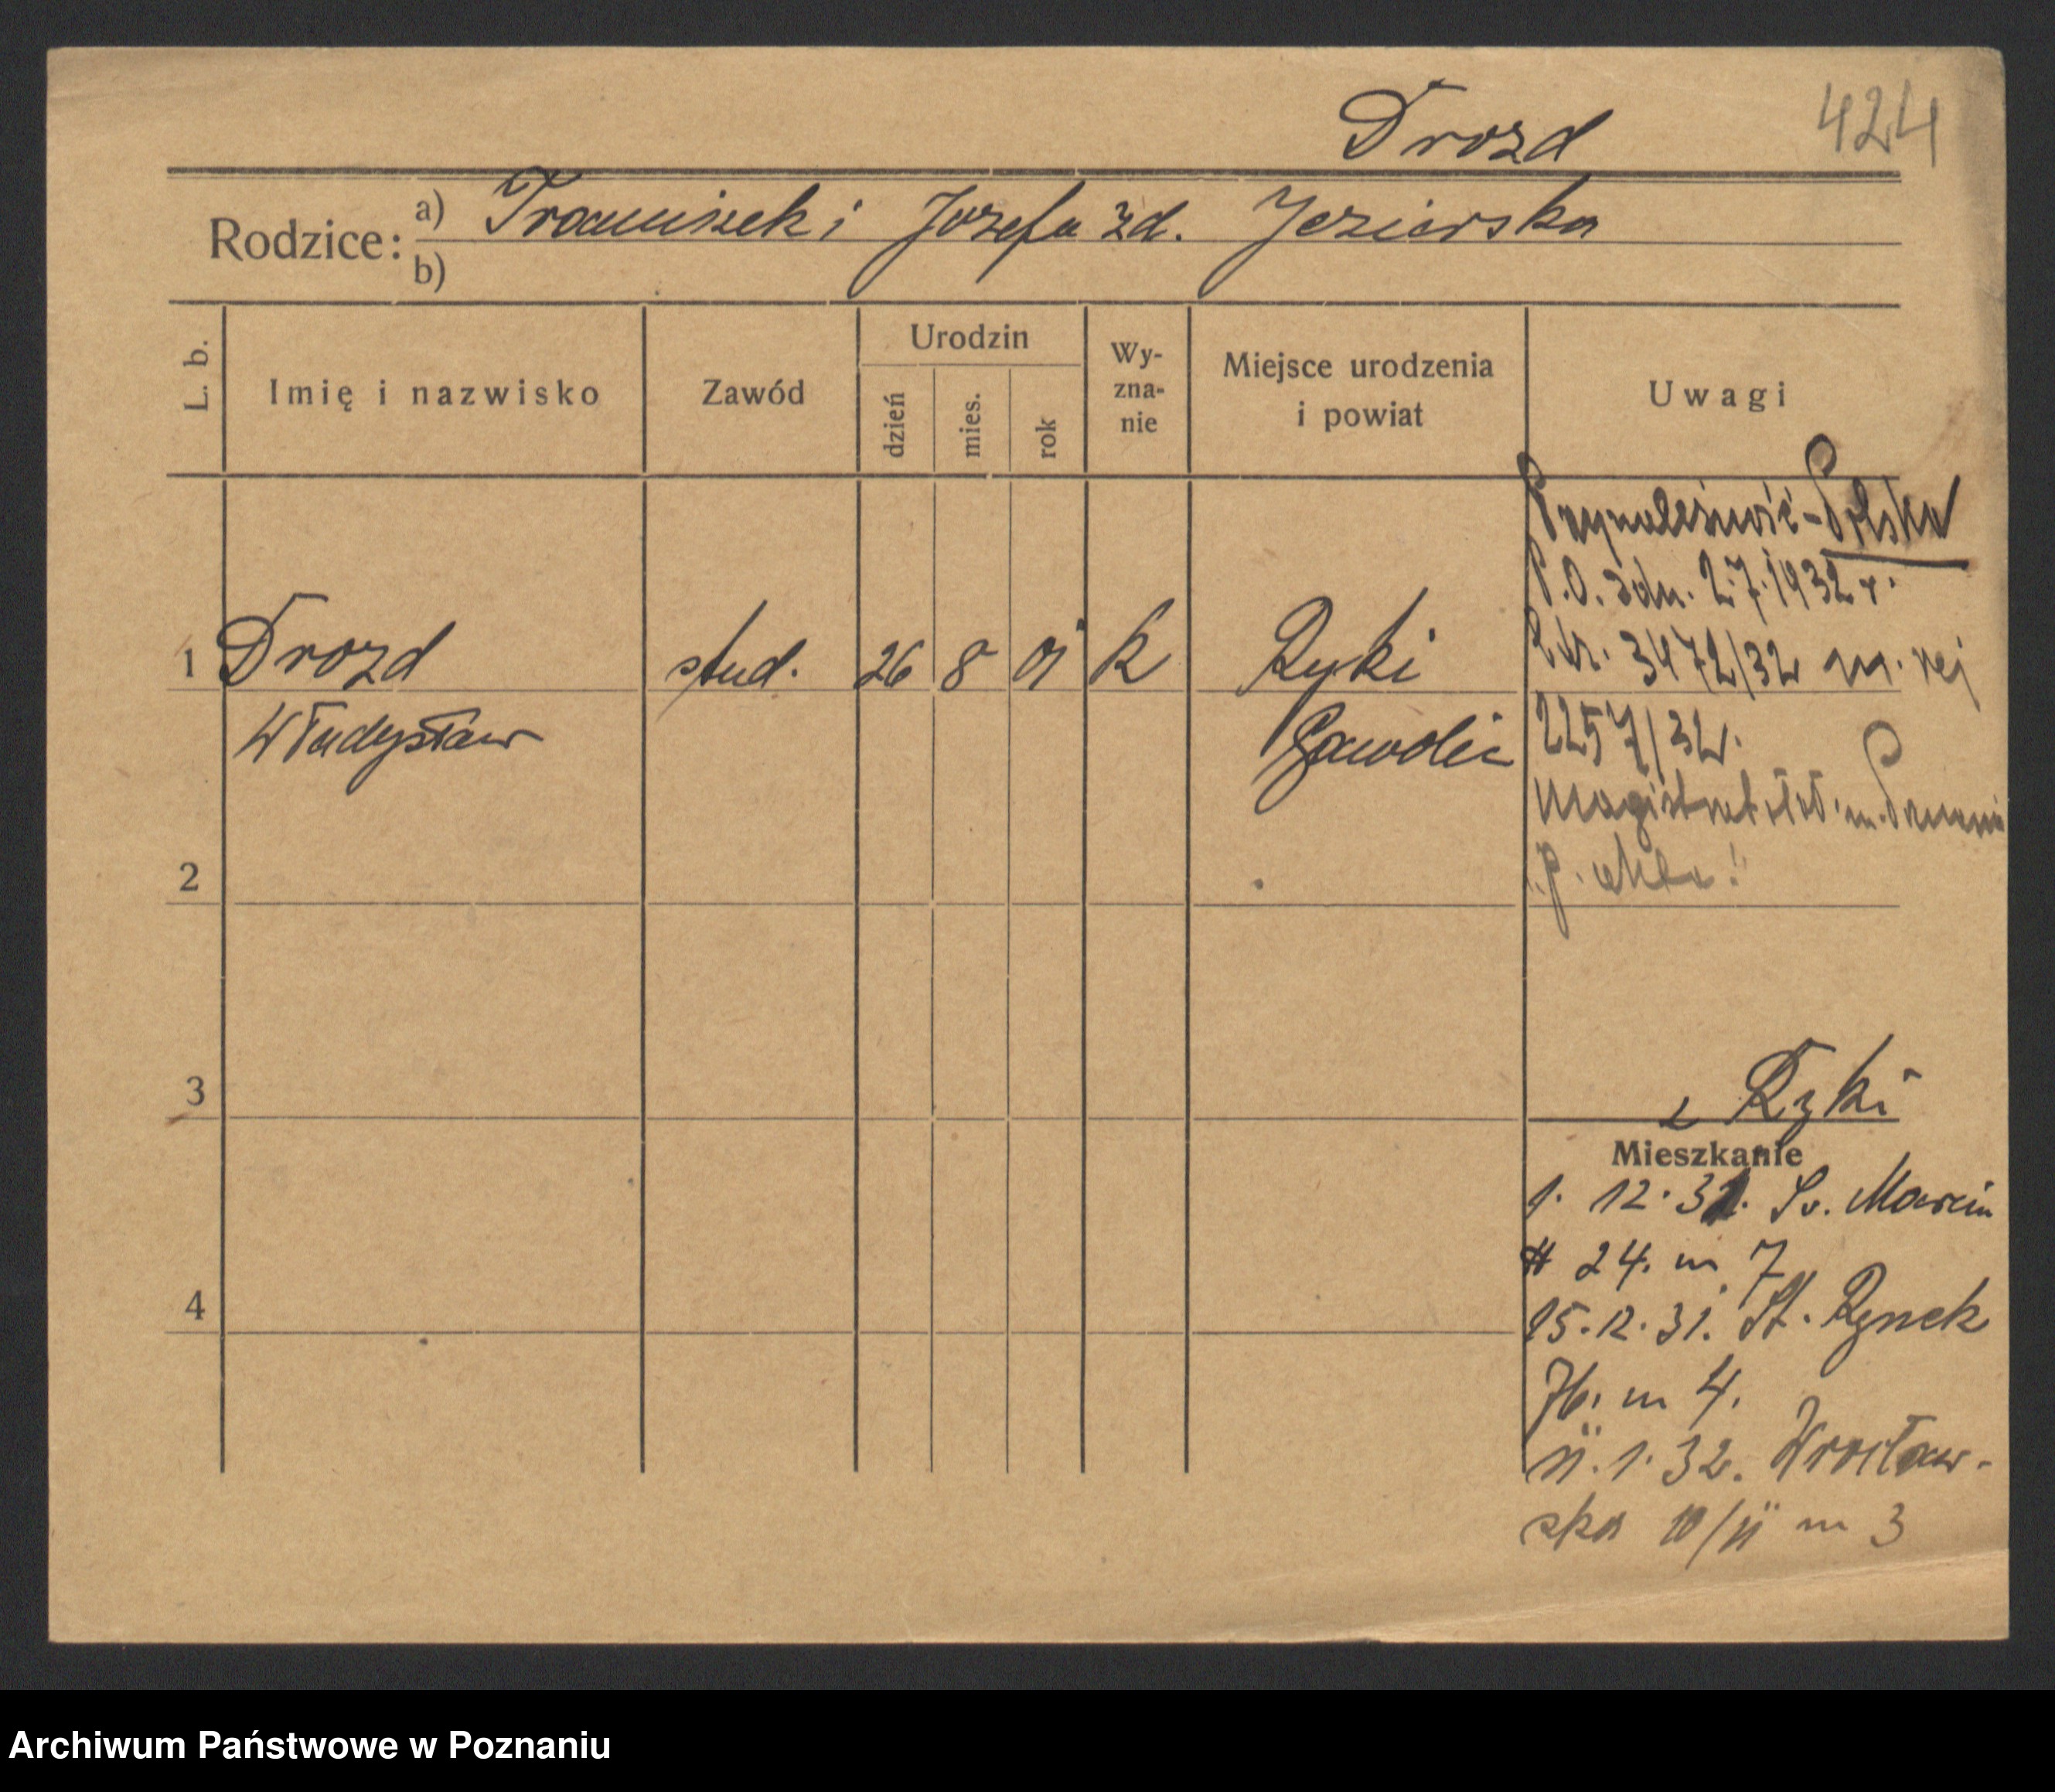 Drozd
424
Rodzice: a) Franciszek i Józefa zd. Jezierska
b)
L. b.
Imię i nazwisko
Zawód
Urodzin
dzień
mies.
rok
Wy-
zna-
nie
Miejsce urodzenia
i powiat
Uwagi
Przynależność - Polska
P.O. zdn. 2.7.1932 r.
L.dz. 3472/32 nr. rej
2257/32.
Magistrat stoł. m. Poznania
1 Drozd stud. 26 8 01 k Ryki
Władysław Garwolin
2
3
z Ryki
Mieszkanie
1. 12. 31. Św. Marcin
24. m 7
4
15. 12. 31. St. Rynek
76. m 4.
11. 1. 32. Wrocław-
ska 10/11 m 3
Archiwum Państwowe w Poznaniu